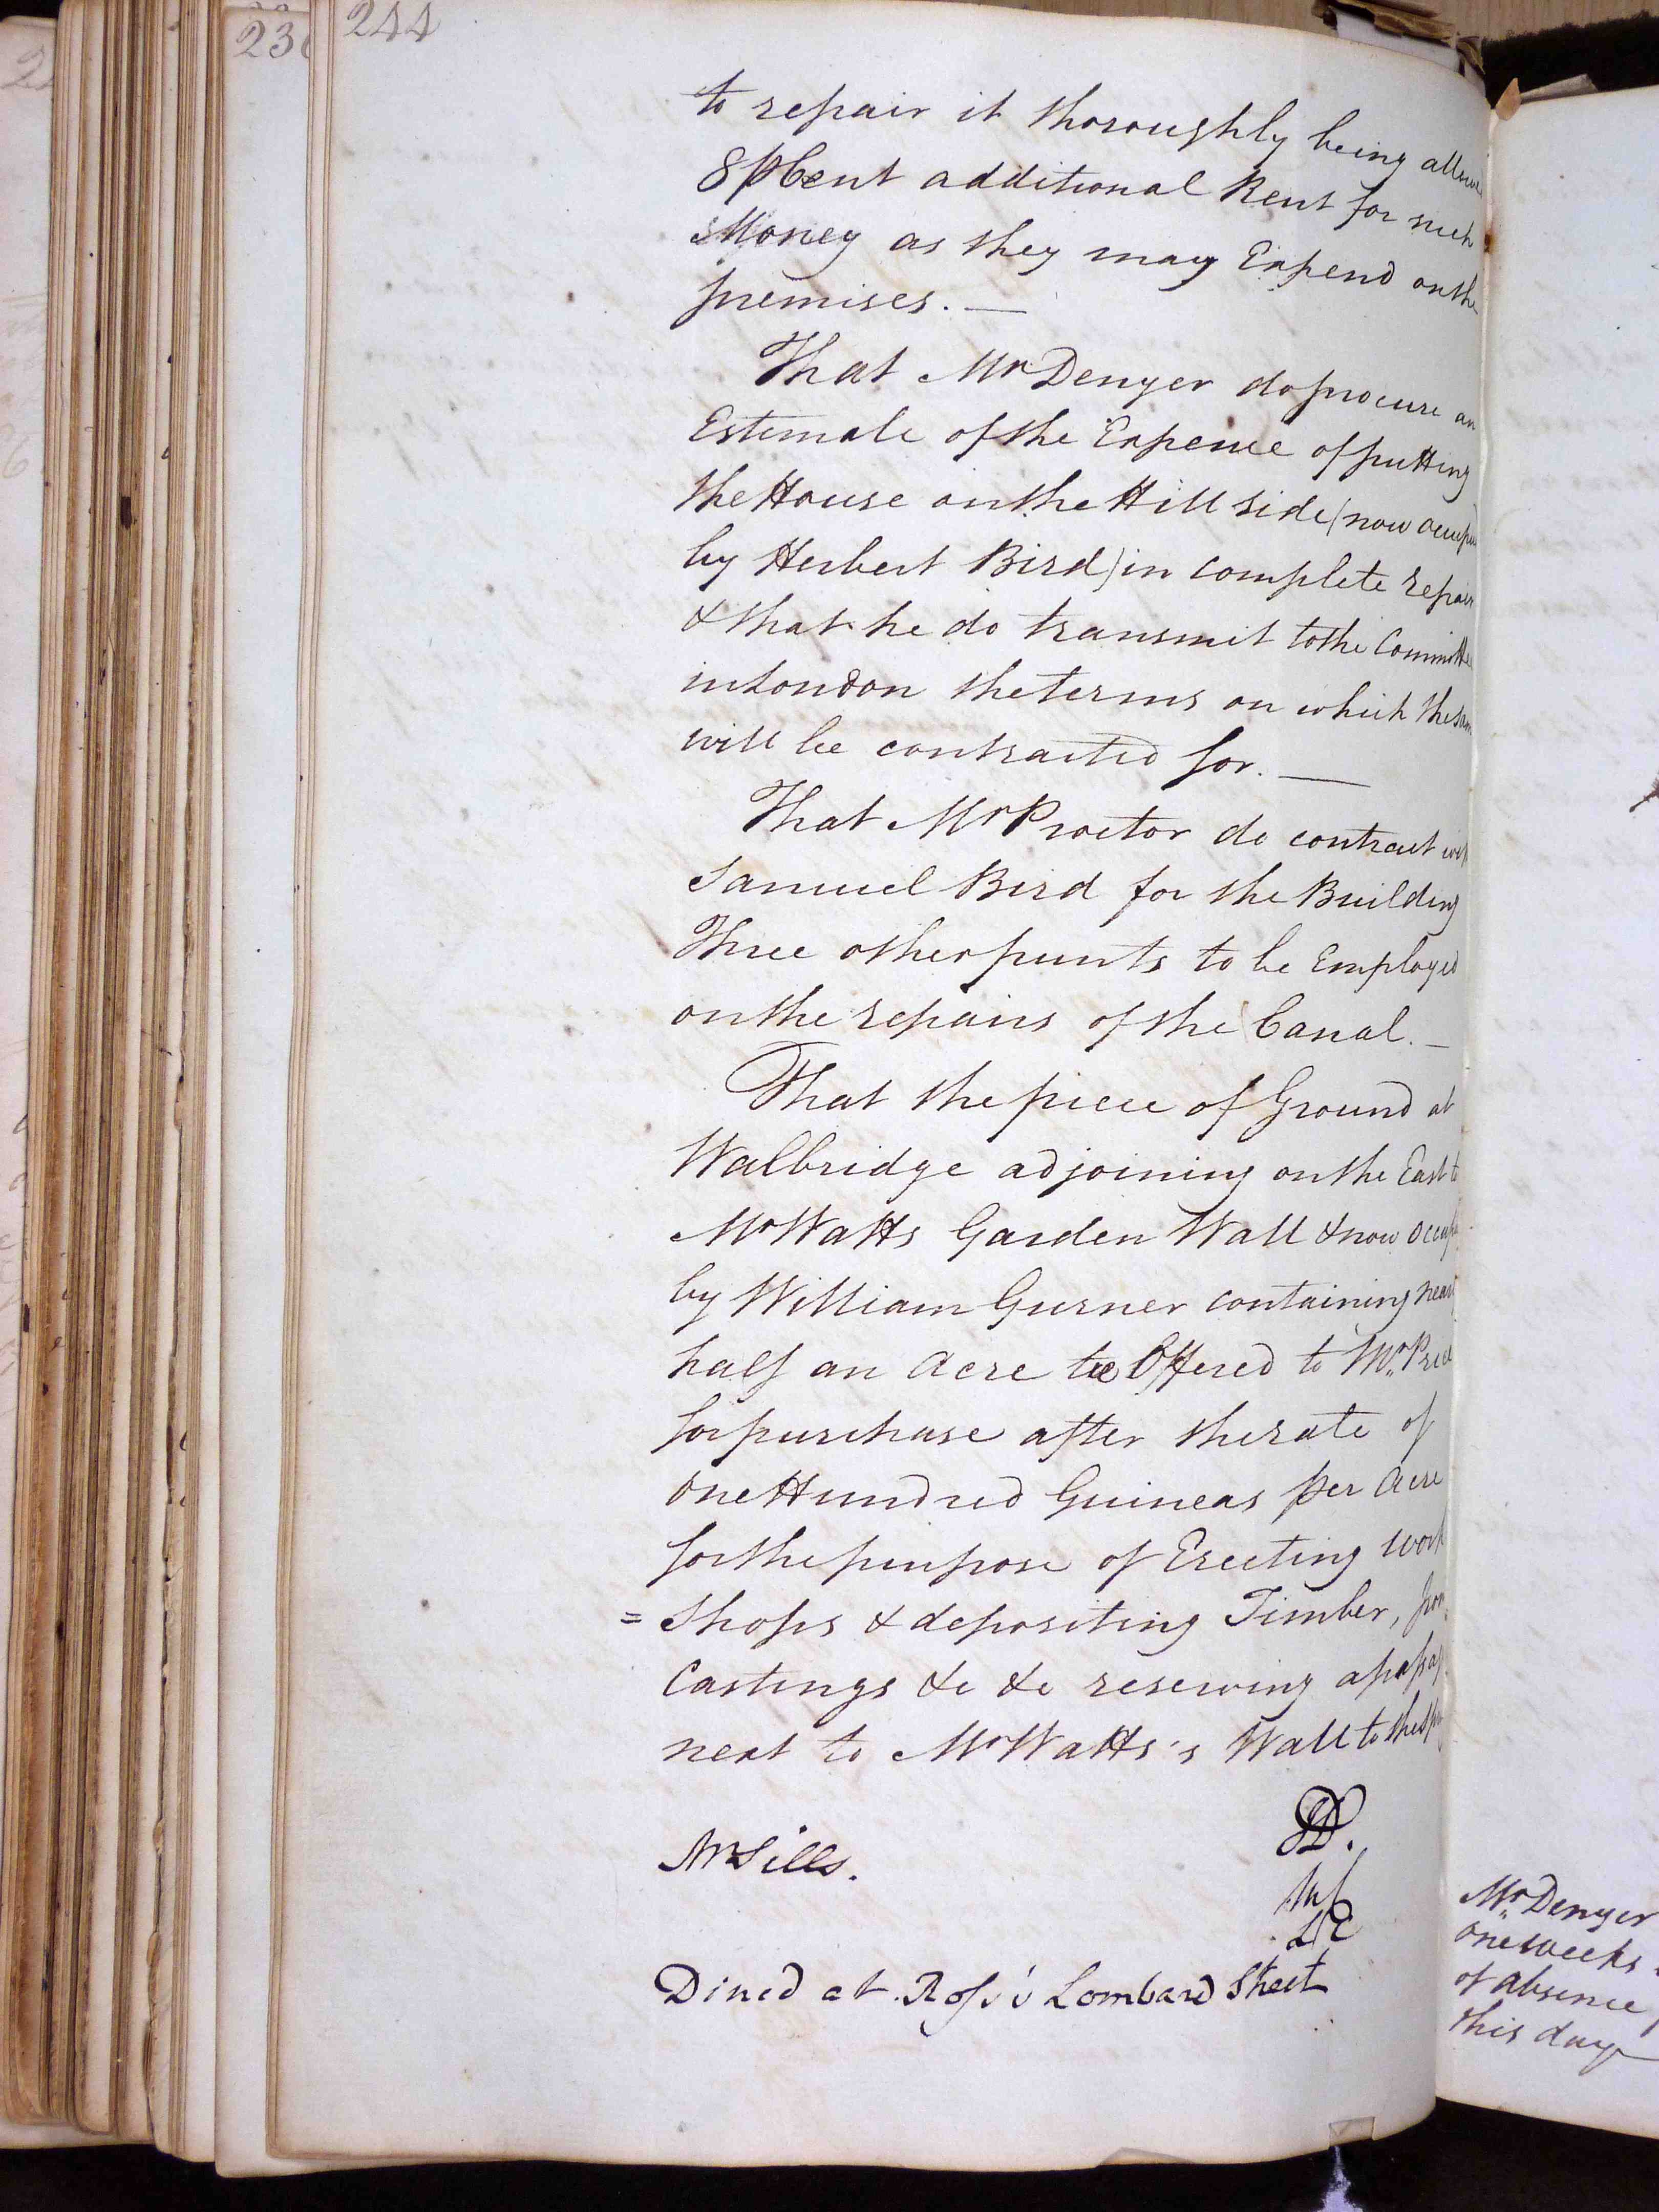 244
to repair it thoroughly being allowed
8 p Cent additional Rent for such
Money as they may Expend on the
premises. —
That Mr Denyer do procure an
Estimate of the Expence of putting
the House on the Hill side (now occupied
by Herbert Bird) in complete repair
& that he do transmit to the Committee
in London the terms on which the same
will be contracted for. —
That Mr Proctor do contract with
Samuel Bird for the Building
Three other punts to be Employed
on the repairs of the Canal. —
That the piece of Ground at
Walbridge adjoining on the East to
Mr Watts Garden Wall & now occup
by William Gurner containing near
half an Acre be Offered to Mr. Price
for purchase after the rate of
One Hundred Guineas per Acre
for the purpose of Erecting Work
= Shops & depositing Timber,
Castings &c &c reserving a passa
next to Mr Watts's Wall to the
Mr Sills.
Dined at Ross's Lombard Street
236
Mr Denyer
one weeks
of absence
this day